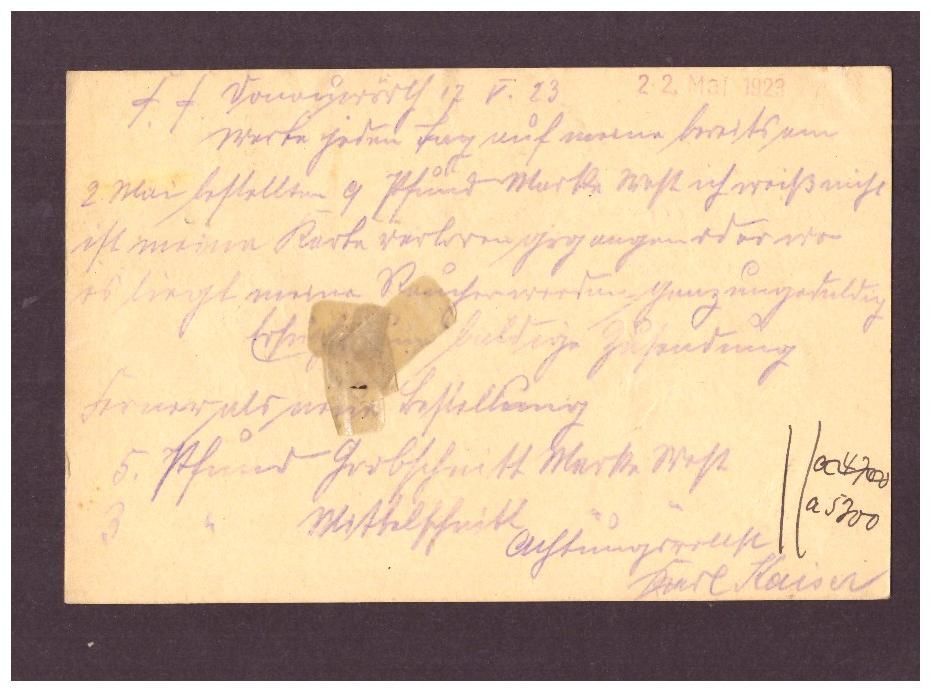 Donauwörth 17 V. 23
22. Mai 1923
Warte jeden Tag auf meine bereits am
2 Mai bestellten 9 Pfund Marke West ich weiß nicht
ist meine Karte verloren gegangen oder wo
es liegt meine Raucher werden ganz ungeduldig
baldige Zusendung
Ferner als neue Bestellung
5. Pfund Grobschnitt Marke West
3 " Mittelschnitt
a 4700
a 5300
Achtungsvollst
Karl Kaiser